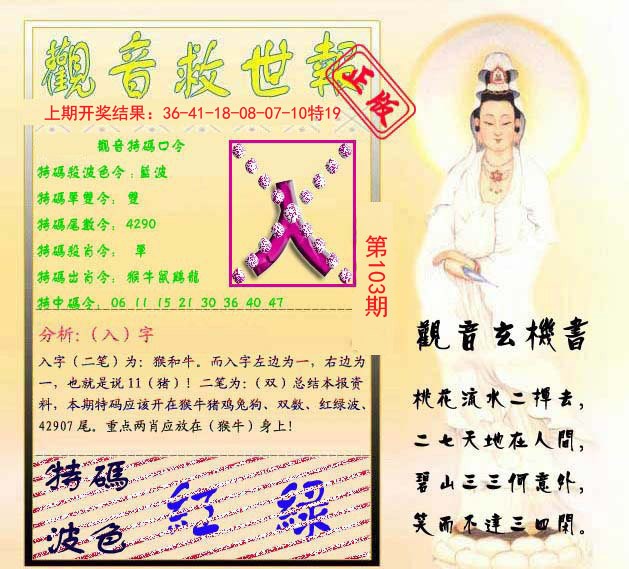 觀音救世報
正版
上期开奖结果：36-41-18-08-07-10特19
觀音特碼口令
特碼殺波色令：藍波
特碼單雙令： 雙
特碼尾數令： 4290
特碼殺肖令： 單
特碼出肖令： 猴牛鼠鷄龍
特中碼令： 06 11 15 21 30 36 40 47
入
第103期
分析:（入）字
入字（二笔）为：猴和牛。而入字左边为一，右边为
一，也就是说 11（猪）！二笔为:（双）总结本报资
料，本期特码应该开在猴牛猪鸡兔狗、双数、红绿波、
42907 尾。重点两肖应放在（猴牛）身上！
特碼
波色
紅 綠
觀音玄機書
桃花流水二揮去，
二七天地在人間，
碧山三三何意外，
笑而不達三四閑。